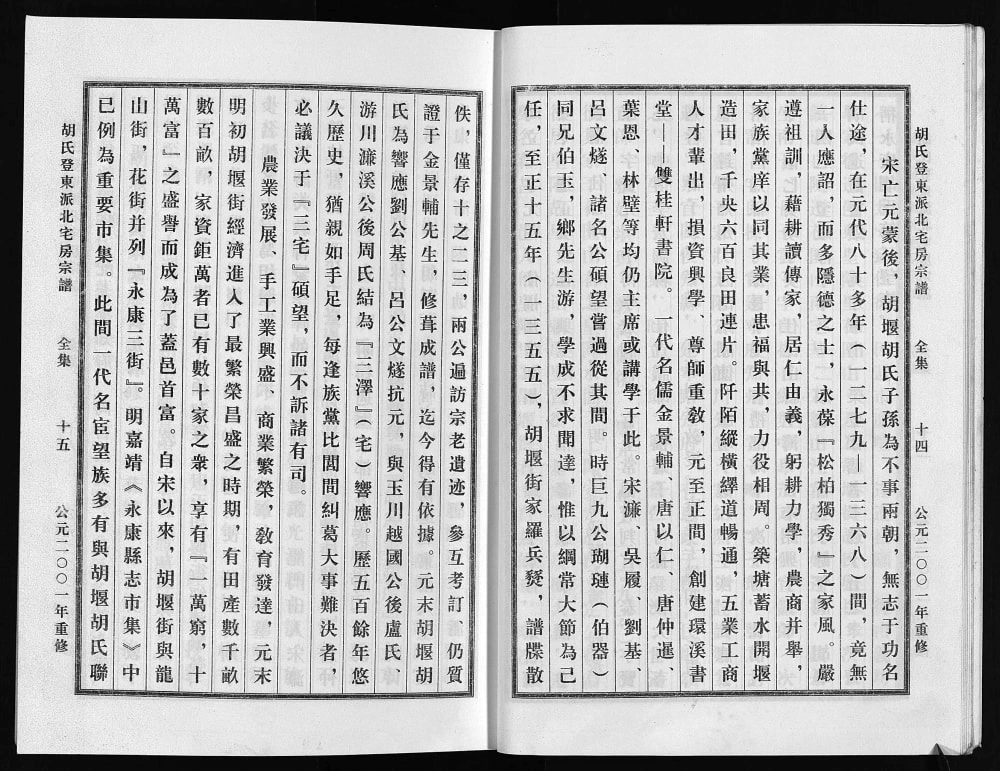 胡氏登東派北宅房宗譜　全集　十四　公元二〇〇一年重修
宋亡元蒙後，胡堰胡氏子孫為不事兩朝，無志于功名
仕途，在元代八十多年（一二七九—一三六八）間，竟無
一人應詔，而多隱德之士，永葆『松柏獨秀』之家風。嚴
遵祖訓，藉耕讀傳家，居仁由義，躬耕力學，農商并舉，
家族黨庠以同其業，患福與共，力役相周。築塘蓄水開堰
造田，千央六百良田連片。阡陌縱橫繹道暢通，五業工商
人才輩出，損資興學、尊師重教，元至正間，創建環溪書
堂——雙桂軒書院。一代名儒金景輔、唐以仁、唐仲暹、
葉恩、林壁等均仍主席或講學于此。宋濂、吳履、劉基、
呂文燧、諸名公碩望嘗過從其間。時巨九公瑚璉（伯器）
同兄伯玉，鄉先生游，學成不求聞達，惟以綱常大節為己
任，至正十五年（一三五五），胡堰街家羅兵燹，譜牒散
佚，僅存十之二三，兩公遍訪宗老遺迹，參互考訂、仍質
證于金景輔先生，修葺成譜，迄今得有依據。元末胡堰胡
氏為響應劉公基、呂公文燧抗元，與玉川越國公後盧氏、
游川濂溪公後周氏結為『三澤』（宅）響應。歷五百餘年悠
久歷史，猶親如手足，每逢族黨比閭間糾葛大事難決者，
必議決于『三宅』碩望，而不訴諸有司。
農業發展、手工業興盛，商業繁榮，教育發達，元末
明初胡堰街經濟進入了最繁榮昌盛之時期，有田產數千畝
數百畝，家資鉅萬者已有數十家之衆，享有『一萬窮，十
萬富』之盛譽而成為了蓋邑首富。自宋以來，胡堰街與龍
山街，花街并列『永康三街』。明嘉靖《永康縣志市集》中
已例為重要市集。此間一代名宦望族多有與胡堰胡氏聯
胡氏登東派北宅房宗譜　全集　十五　公元二〇〇一年重修